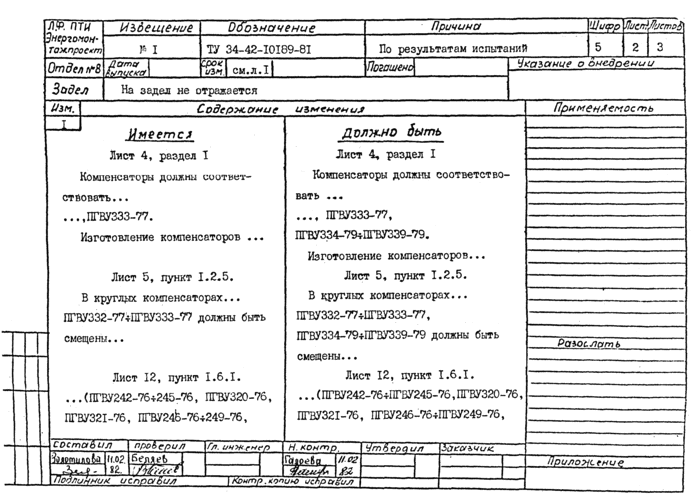 Л.Ф. ПТИ
Энергомон-
тажпроект
Извещение
Обозначение
Причина
Шифр
Лист
Листов
№ I
ТУ 34-42-I0I89-8I
По результатам испытаний
5
2
3
Отдел №8
Дата
выпуска
Срок
изм.
см.л.I
Погашено
Указание о внедрении
Задел
На задел не отражается
Изм.
Содержание изменения
Применяемость
I
Имеется
Лист 4, раздел I
Компенсаторы должны соответ-
ствовать...
...,ПГВУ333-77.
Изготовление компенсаторов ...
Лист 5, пункт I.2.5.
В круглых компенсаторах...
ПГВУ332-77÷ПГВУ333-77 должны быть
смещены...
Лист I2, пункт I.6.I.
...(ПГВУ242-76÷245-76, ПГВУ320-76,
ПГВУ32I-76, ПГВУ246÷249-76,
Должно быть
Лист 4, раздел I
Компенсаторы должны соответство-
вать ...
..., ПГВУ333-77,
ПГВУ334-79÷ПГВУ339-79.
Изготовление компенсаторов...
Лист 5, пункт I.2.5.
В круглых компенсаторах...
ПГВУ332-77÷ПГВУ333-77,
ПГВУ334-79÷ПГВУ339-79 должны быть
смещены...
Лист I2, пункт I.6.I.
...(ПГВУ242-76÷ПГВУ245-76,ПГВУ320-76,
ПГВУ32I-76, ПГВУ246-76÷ПГВУ249-76,
Разослать
составил
проверил
Гл. инженер
Н. контр.
Утвердил
Заказчик
Золотилова 11.02
82
Беляев
Гадоева 11.02
82
Приложение
Подлинник исправил
Контр. копию исправил